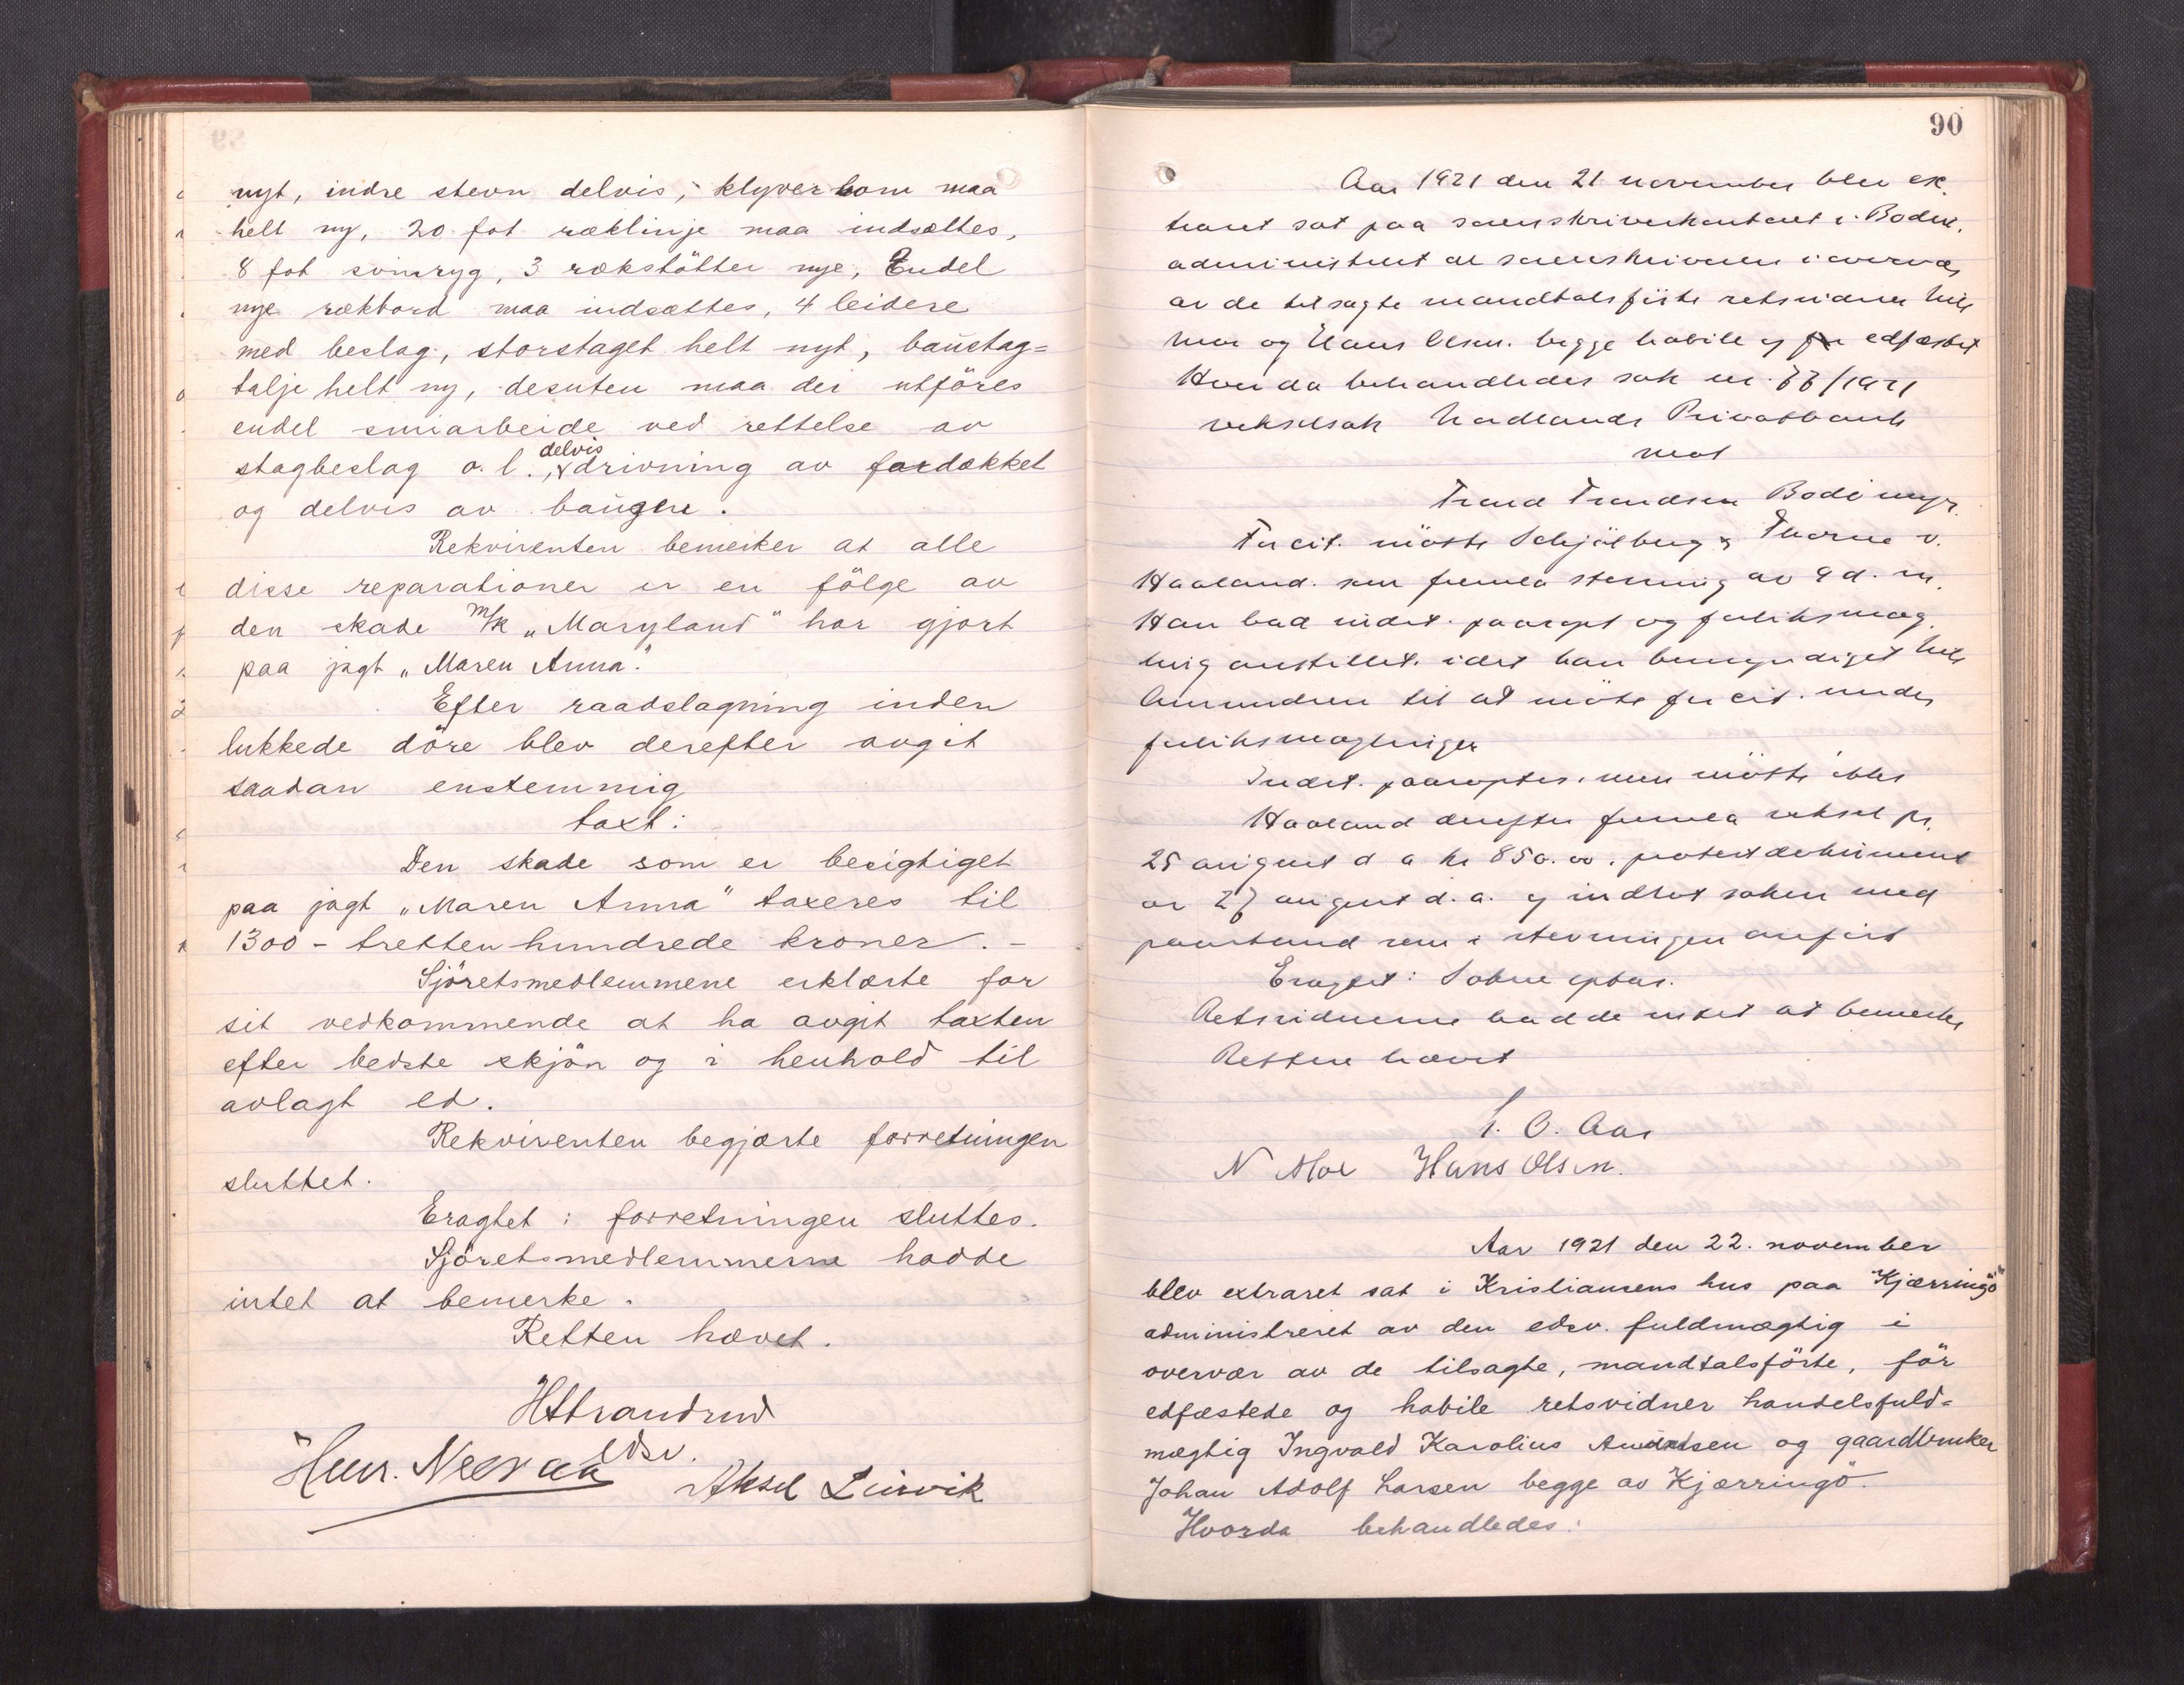 nyt, indre stevn delvis, klyverbom maa
helt ny, 20 fot ræklinje maa indsættes,
8 fot svinryg, 3 rækstötter nye, Endel
nye rækbord maa indsættes, 4 leidere
med beslag, storstaget helt nyt, baustag=
talje helt ny, desuten maa der utföres
endel smiarbeide ved rettelse av
stagbeslag o.l., delvis drivning av fordækket
og delvis av baugen.
Rekvirenten bemerker at alle
disse reparationer er en fölge av
den skade m/k „Maryland" har gjort
paa jagt „Maren Anna."
Efter raadslagning inden
lukkede döre blev derefter avgit
saadan enstemmig
taxt:
Den skade som er besigtiget
paa jagt „Maren Anna" taxeres til
1300 - tretten hundrede kroner. -
Sjöretsmedlemmene erklærte for
sit vedkommende at ha avgit taxten
efter bedste skjön og i henhold til
avlagt ed.
Rekvirenten begjærte forretningen
sluttet.
Eragtet: forretningen sluttes.
Sjöretsmedlemmerne hadde
intet at bemerke.
Retten hævet.
HStrandrud
edsv.
Aksel Leirvik
90
Aar 1921 den 21 november blev ek.
traret sat paa sorenskriverkontoret i Bodin,
administrert av sorenskriveren i overvær
av de tilsagte mandtalsförte retsvidner Nils
Moe og Hans Olsen. begge habile og för edfæstet
Hvor da behandledes sak nr. 77/1921
vekselsak Nordlands Privatbank
mot
Trond Trondsen Bodömyr.
For cit. mötte Schjölberg & Thorne v.
Haaland. som fremla stevning av 9 d. m.
Han bad indst. paaropt og forliksmæg
ling anstillet. idet han bemyndiget Nils
Amundsen til at möte for cit. under
forliksmæglingen
Indst. paaroptes. men mötte ikke
Haaland derefter fremla veksel pr.
25 august d a kr 850.00. protestdokument
av 27 august d. a. og indlot saken med
paastand som i stevningen anfört
Eragtet: Saken optas.
Retsvidnerne hadde intet at bemerke
Retten hævet
O. Aas
N Moe Hans Olsen.
Aar 1921 den 22. november
blev extraret sat i Kristiansens hus paa Kjærringö
administreret av den edsv. fuldmægtig i
overvær av de tilsagte, mandtalsförte, för
edfæstede og habile retsvidner handelsfuld=
mægtig Ingvald Karolius Amundsen og gaardbruker
Johan Adolf Larsen begge av Kjærringö.
Hvorda behandledes: